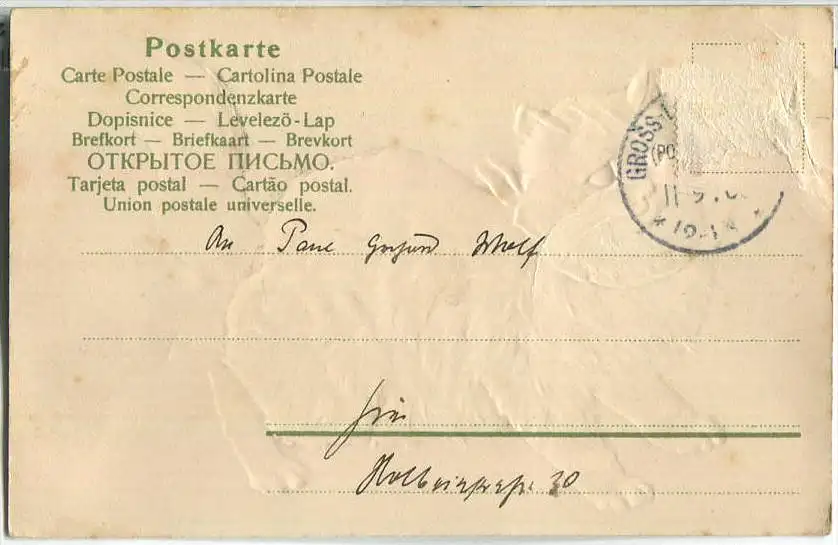 Postkarte
Carte Postale — Cartolina Postale
Correspondenzkarte
Dopisnice — Levelező-Lap
Brefkort — Briefkaart — Brevkort
ОТКРЫТОЕ ПИСЬМО.
Tarjeta postal — Cartão postal.
Union postale universelle.
GROSS-
(PO
11 9
An Paul Wolf
Hier
Holbeinstraße 30